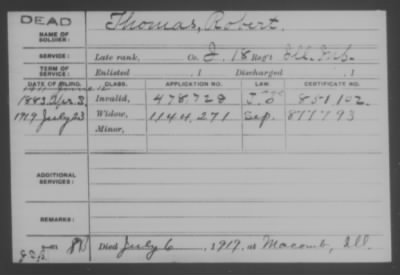 DEAD
NAME OF SOLDIER: Thomas, Robert.
SERVICE: Late rank, Co. I, 18 Reg't Ill. Inf.
TERM OF SERVICE: Enlisted , 1 Discharged , 1
DATE OF FILING. CLASS. APPLICATION NO. LAW. CERTIFICATE NO.
1883 Apr. 3, Invalid, 478,728 851,102.
1917 July 23 Widow, 1144,271 Sep. 877793
Minor,
ADDITIONAL SERVICES:
REMARKS:
Died July 6, 1917, at Macomb, Ill.